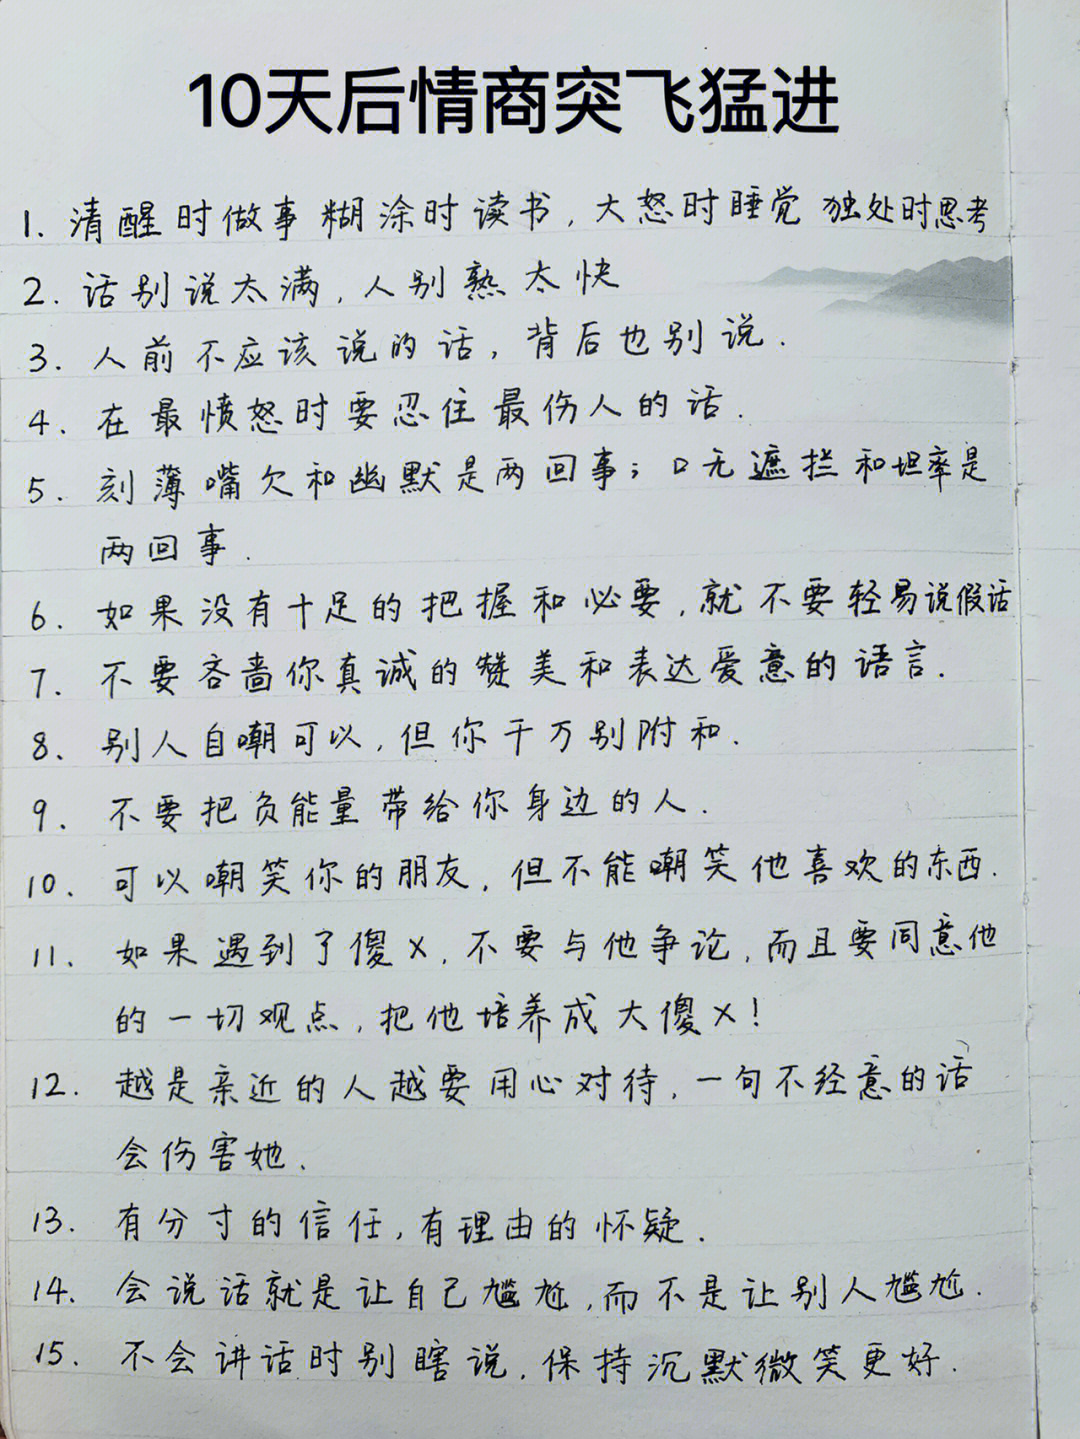 10天后情商突飞猛进
1. 清醒时做事 糊涂时读书, 大怒时睡觉 独处时思考
2. 话别说太满, 人别熟太快
3. 人前不应该说的话, 背后也别说.
4. 在最愤怒时要忍住最伤人的话.
5. 刻薄嘴欠和幽默是两回事; 口无遮拦和坦率是
两回事.
6. 如果没有十足的把握和必要, 就不要轻易说假话
7. 不要吝啬你真诚的赞美和表达爱意的语言.
8. 别人自嘲可以, 但你千万别附和.
9. 不要把负能量带给你身边的人.
10. 可以嘲笑你的朋友, 但不能嘲笑他喜欢的东西.
11. 如果遇到了傻x, 不要与他争论, 而且要同意他
的一切观点, 把他培养成大傻x!
12. 越是亲近的人越要用心对待, 一句不经意的话
会伤害她.
13. 有分寸的信任, 有理由的怀疑.
14. 会说话就是让自己尴尬, 而不是让别人尴尬.
15. 不会讲话时别瞎说, 保持沉默微笑更好.